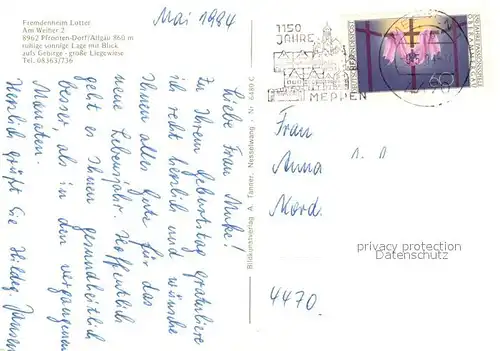 Fremdenheim Lotter
Am Weiher 2
8962 Pfronten-Dorf/Allgäu 860 m
ruhige sonnige Lage mit Blick
aufs Gebirge - große Liegewiese
Tel. 08363/736
Mai 1984
Liebe Frau Muke!
Zu Ihrem Geburtstag gratuliere
ich recht herzlich und wünsche
Ihnen alles Gute für das
neue Lebensjahr. Hoffentlich
geht es Ihnen gesundheitlich
besser, als in den vergangenen
Monaten.
Herzlich grüßt Sie Hildeg. Jansen
Bildkunstverlag A. Tanner, Nesselwang
1150
JAHRE
MEPPEN
60
Frau
Anna
Mord.
4470.
privacy protection
Datenschutz